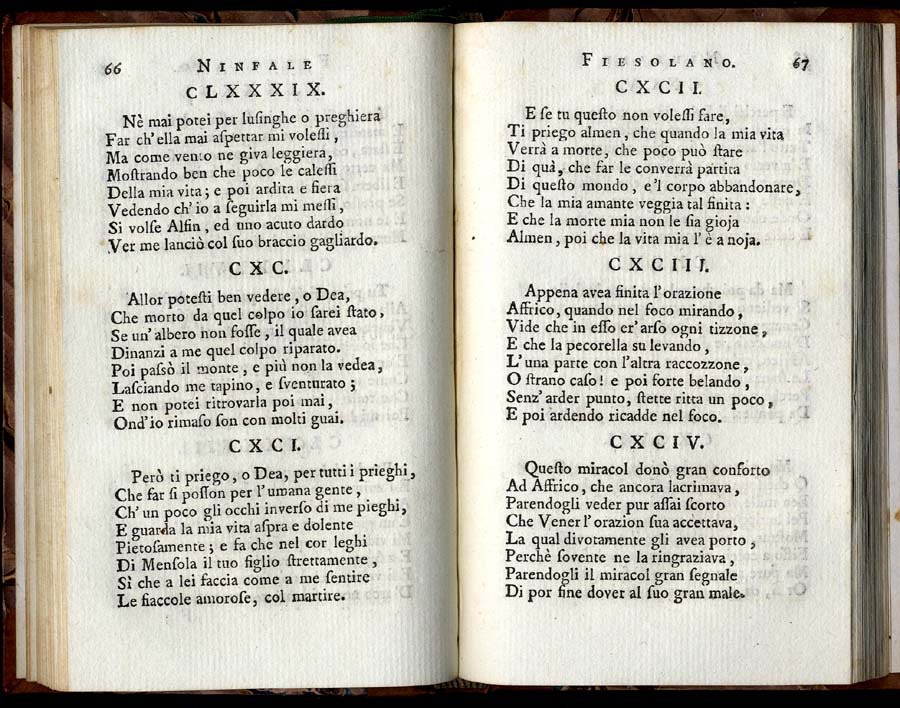 66 NINFALE
CLXXXIX.
Nè mai potei per luſinghe o preghiera
Far ch' ella mai aſpettar mi voleſſi,
Ma come vento ne giva leggiera,
Moſtrando ben che poco le caleſſi
Della mia vita; e poi ardita e fiera
Vedendo ch' io a ſeguirla mi meſſi,
Si volſe Alfin, ed uno acuto dardo
Ver me lanciò col ſuo braccio gagliardo.
CXC.
Allor poteſti ben vedere, o Dea,
Che morto da quel colpo io ſarei ſtato,
Se un' albero non foſſe, il quale avea
Dinanzi a me quel colpo riparato.
Poi paſsò il monte, e più non la vedea,
Laſciando me tapino, e ſventurato;
E non potei ritrovarla poi mai,
Ond' io rimaſo ſon con molti guai.
CXCI.
Però ti priego, o Dea, per tutti i prieghi,
Che far ſi poſſon per l' umana gente,
Ch' un poco gli occhi inverſo di me pieghi,
E guarda la mia vita aſpra e dolente
Pietoſamente; e fa che nel cor leghi
Di Menſola il tuo figlio ſtrettamente,
Sì che a lei faccia come a me ſentire
Le fiaccole amoroſe, col martire.
FIESOLANO. 67
CXCII.
E ſe tu queſto non voleſſi fare,
Ti priego almen, che quando la mia vita
Verrà a morte, che poco può ſtare
Di quà, che far le converrà partita
Di queſto mondo, e 'l corpo abbandonare,
Che la mia amante veggia tal finita:
E che la morte mia non le ſia gioja
Almen, poi che la vita mia l' è a noja.
CXCIII.
Appena avea finita l' orazione
Affrico, quando nel foco mirando,
Vide che in eſſo er' arſo ogni tizzone,
E che la pecorella su levando,
L' una parte con l'altra raccozzone,
O ſtrano caſo! e poi forte belando,
Senz' arder punto, ſtette ritta un poco,
E poi ardendo ricadde nel foco.
CXCIV.
Queſto miracol donò gran conforto
Ad Affrico, che ancora lacrimava,
Parendogli veder pur aſſai ſcorto
Che Vener l' orazion ſua accettava,
La qual divotamente gli avea porto,
Perchè ſovente ne la ringraziava,
Parendogli il miracol gran ſegnale
Di por fine dover al ſuo gran male.